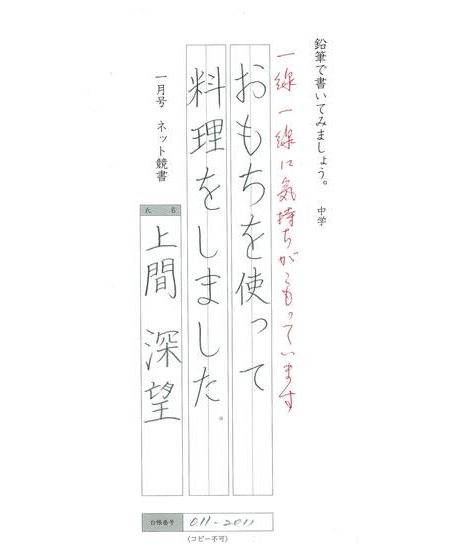 鉛筆で書いてみましょう。 中学
一線一線に気持ちがこもっています
おもちを使って
料理をしました
一月号 ネット競書
氏名
上間 深望
台帳番号 011-2011
(コピー不可)